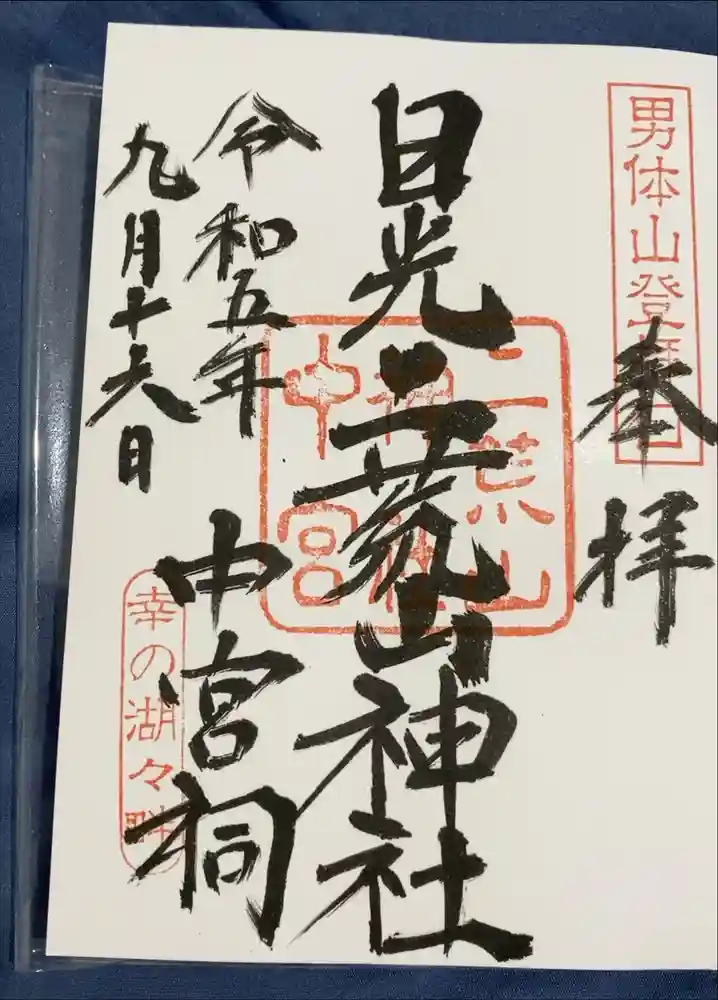 男体山登拝口
奉拝
日光二荒山神社
中宮祠
二荒山
神社
中宮
令和五年
九月十六日
幸の湖々畔